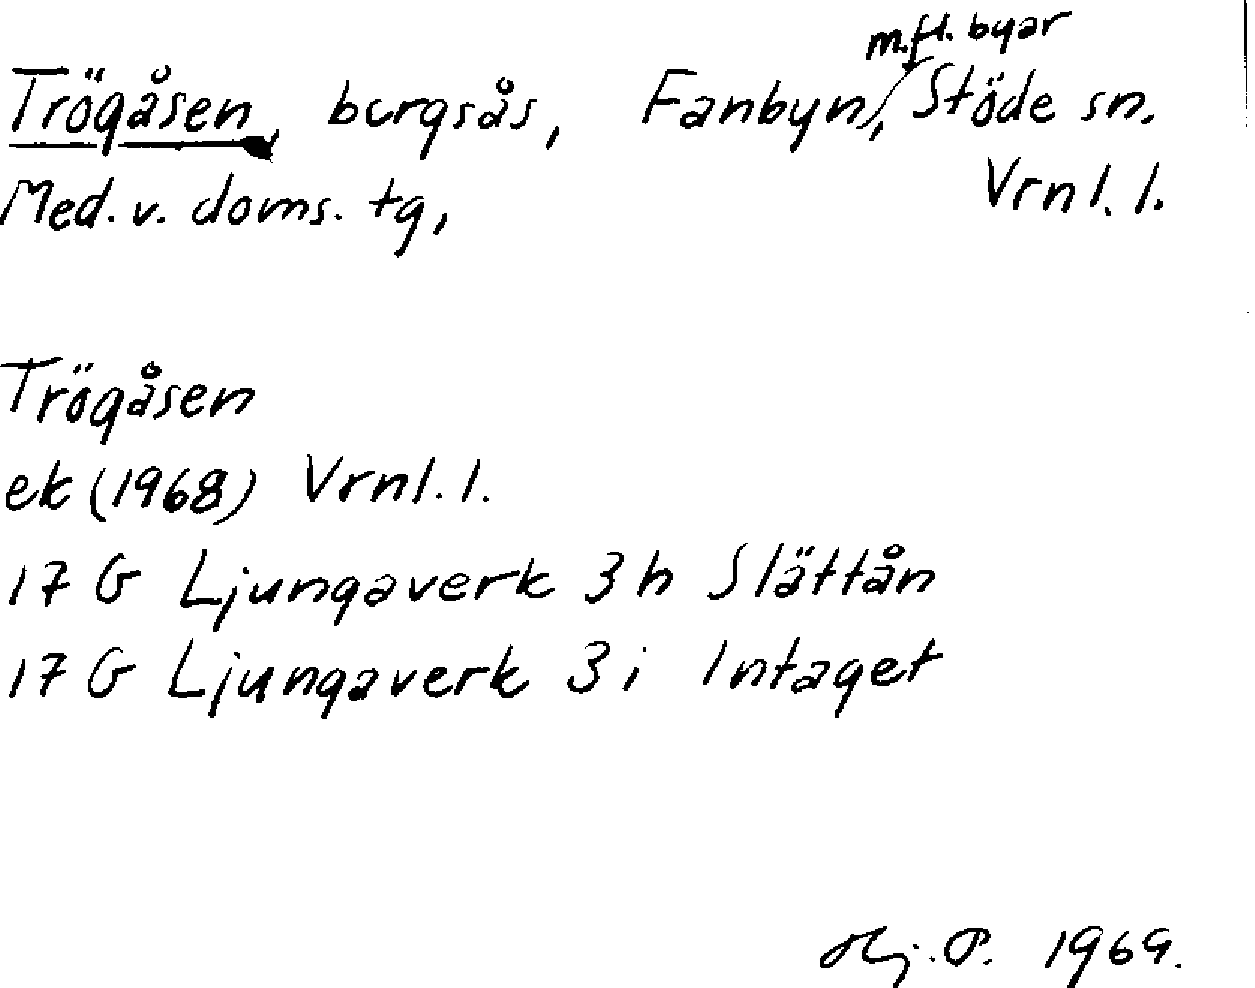 m.fl. byar
Trögåsen, bergsås, Fanbyn, Stöde sn.
Med. v. doms. tg, Vrnl. l.
Trögåsen
ek (1968) Vrnl. l.
17 G Ljungaverk 3 h Slättån
17 G Ljungaverk 3 i Intaget
Hj. P. 1969.